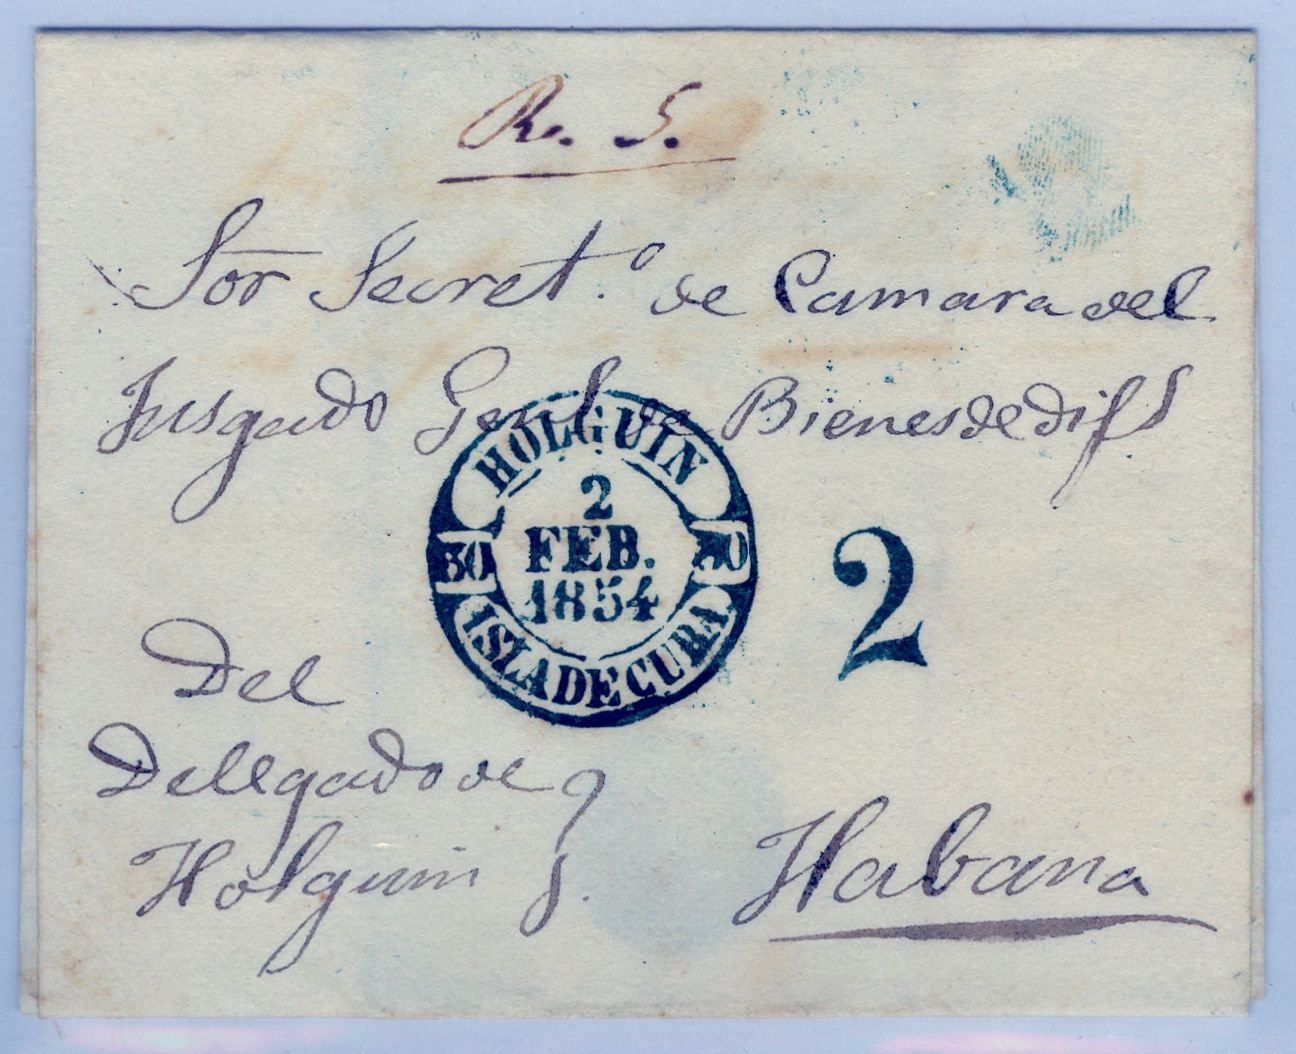 R. S.
Sōr Secret.º de Camara del
Jusgado Genl de Bienes de difs
HOLGUIN
2
FEB.
1854
30 30
ISLA DE CUBA.
2
Del
Delegado de
Holguin
Habana